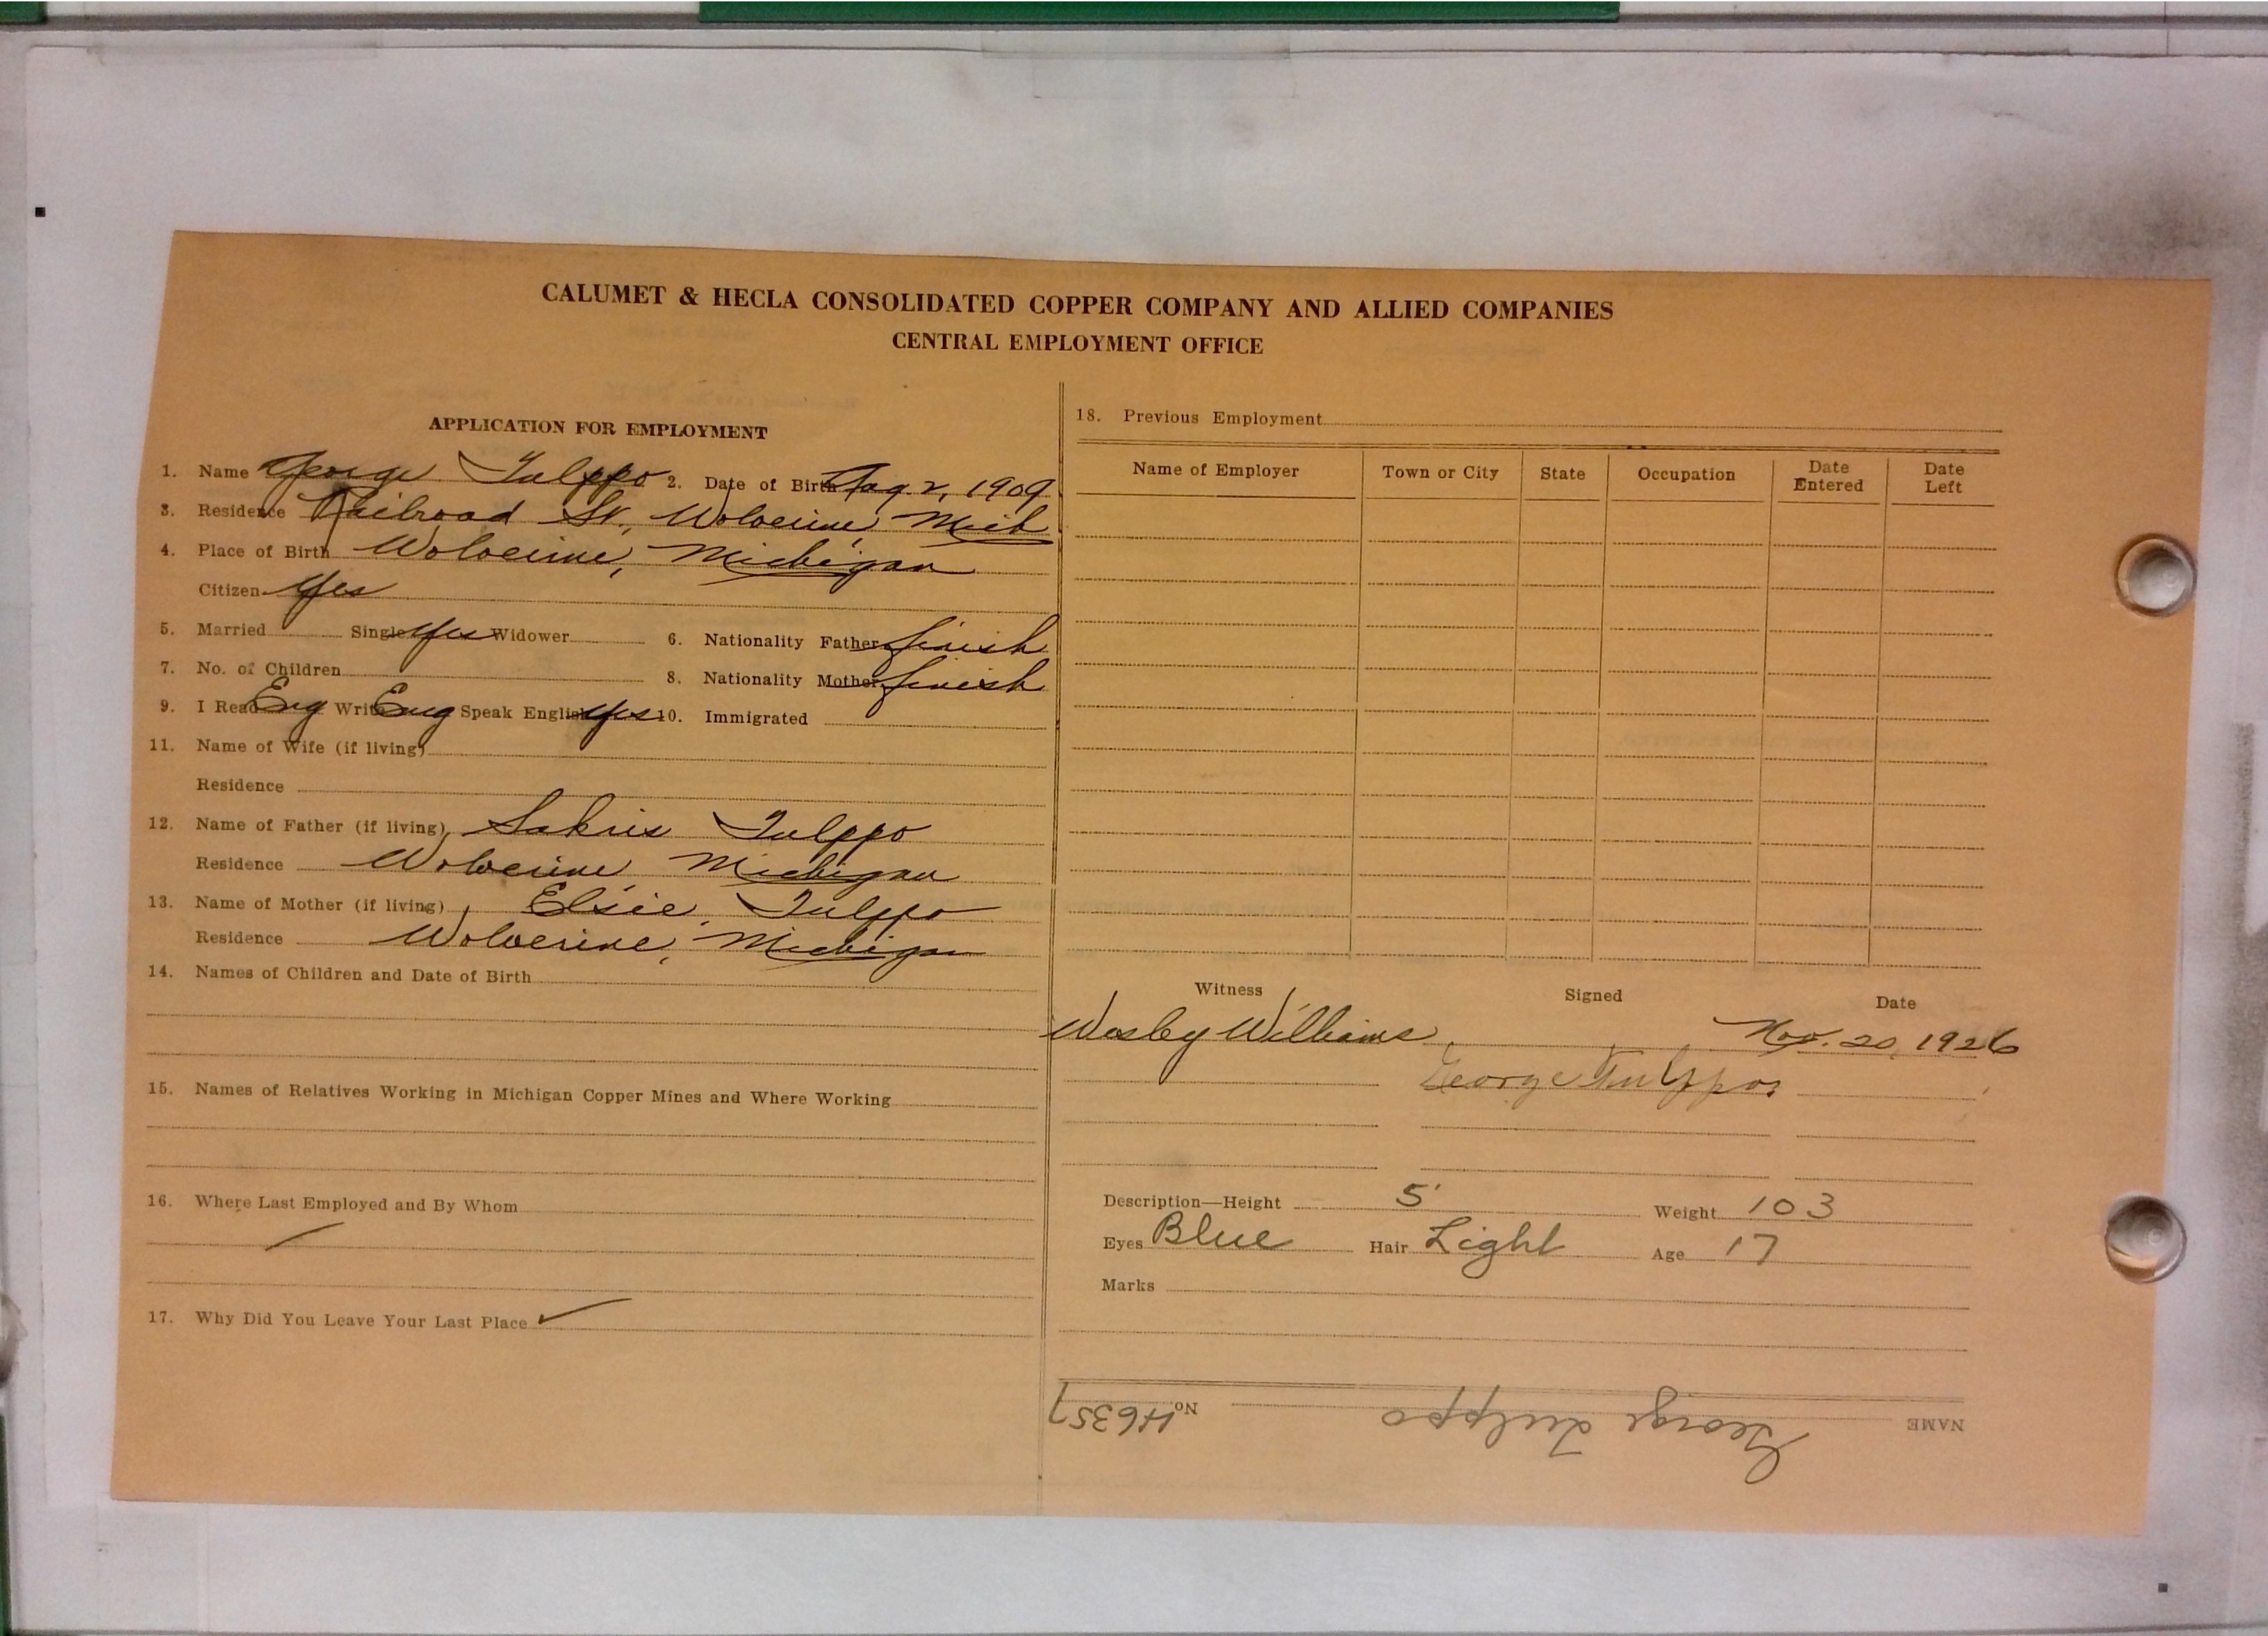 CALUMET & HECLA CONSOLIDATED COPPER COMPANY AND ALLIED COMPANIES
CENTRAL EMPLOYMENT OFFICE
APPLICATION FOR EMPLOYMENT
1. Name George Tulppo 2. Date of Birth Aug. 2, 1909
3. Residence Railroad St., Wolverine, Mich
4. Place of Birth Wolverine, Michigan
Citizen Yes
5. Married Single Yes Widower 6. Nationality Father finish
7. No. of Children 8. Nationality Mother finish
9. I Read Eng Write Eng Speak English Yes 10. Immigrated
11. Name of Wife (if living)
Residence
12. Name of Father (if living) Sakris Tulppo
Residence Wolverine Michigan
13. Name of Mother (if living) Elsie, Tulppo
Residence Wolverine, Michigan
14. Names of Children and Date of Birth
15. Names of Relatives Working in Michigan Copper Mines and Where Working
16. Where Last Employed and By Whom
17. Why Did You Leave Your Last Place
18. Previous Employment
Name of Employer Town or City State Occupation Date Entered Date Left
Witness Signed Date
Wesley Williams Nov. 20, 1926
George Tulppo
Description—Height 5' Weight 103
Eyes Blue Hair Light Age 17
Marks
NAME George Tulppo No. 46357